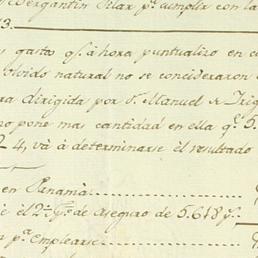 Bergantin Pilar pa. cumplir con la
3.
gasto qe. ahora puntualizo en c
olvido natural no se consideraron
ra dirigida por Dn. Manuel de Irig
no pone mas cantidad en ella qe. 5.
4, và à determinarse el resultado
en Panamá
el 2 de aseguro de 5.618 ps.
pa. Emplearse